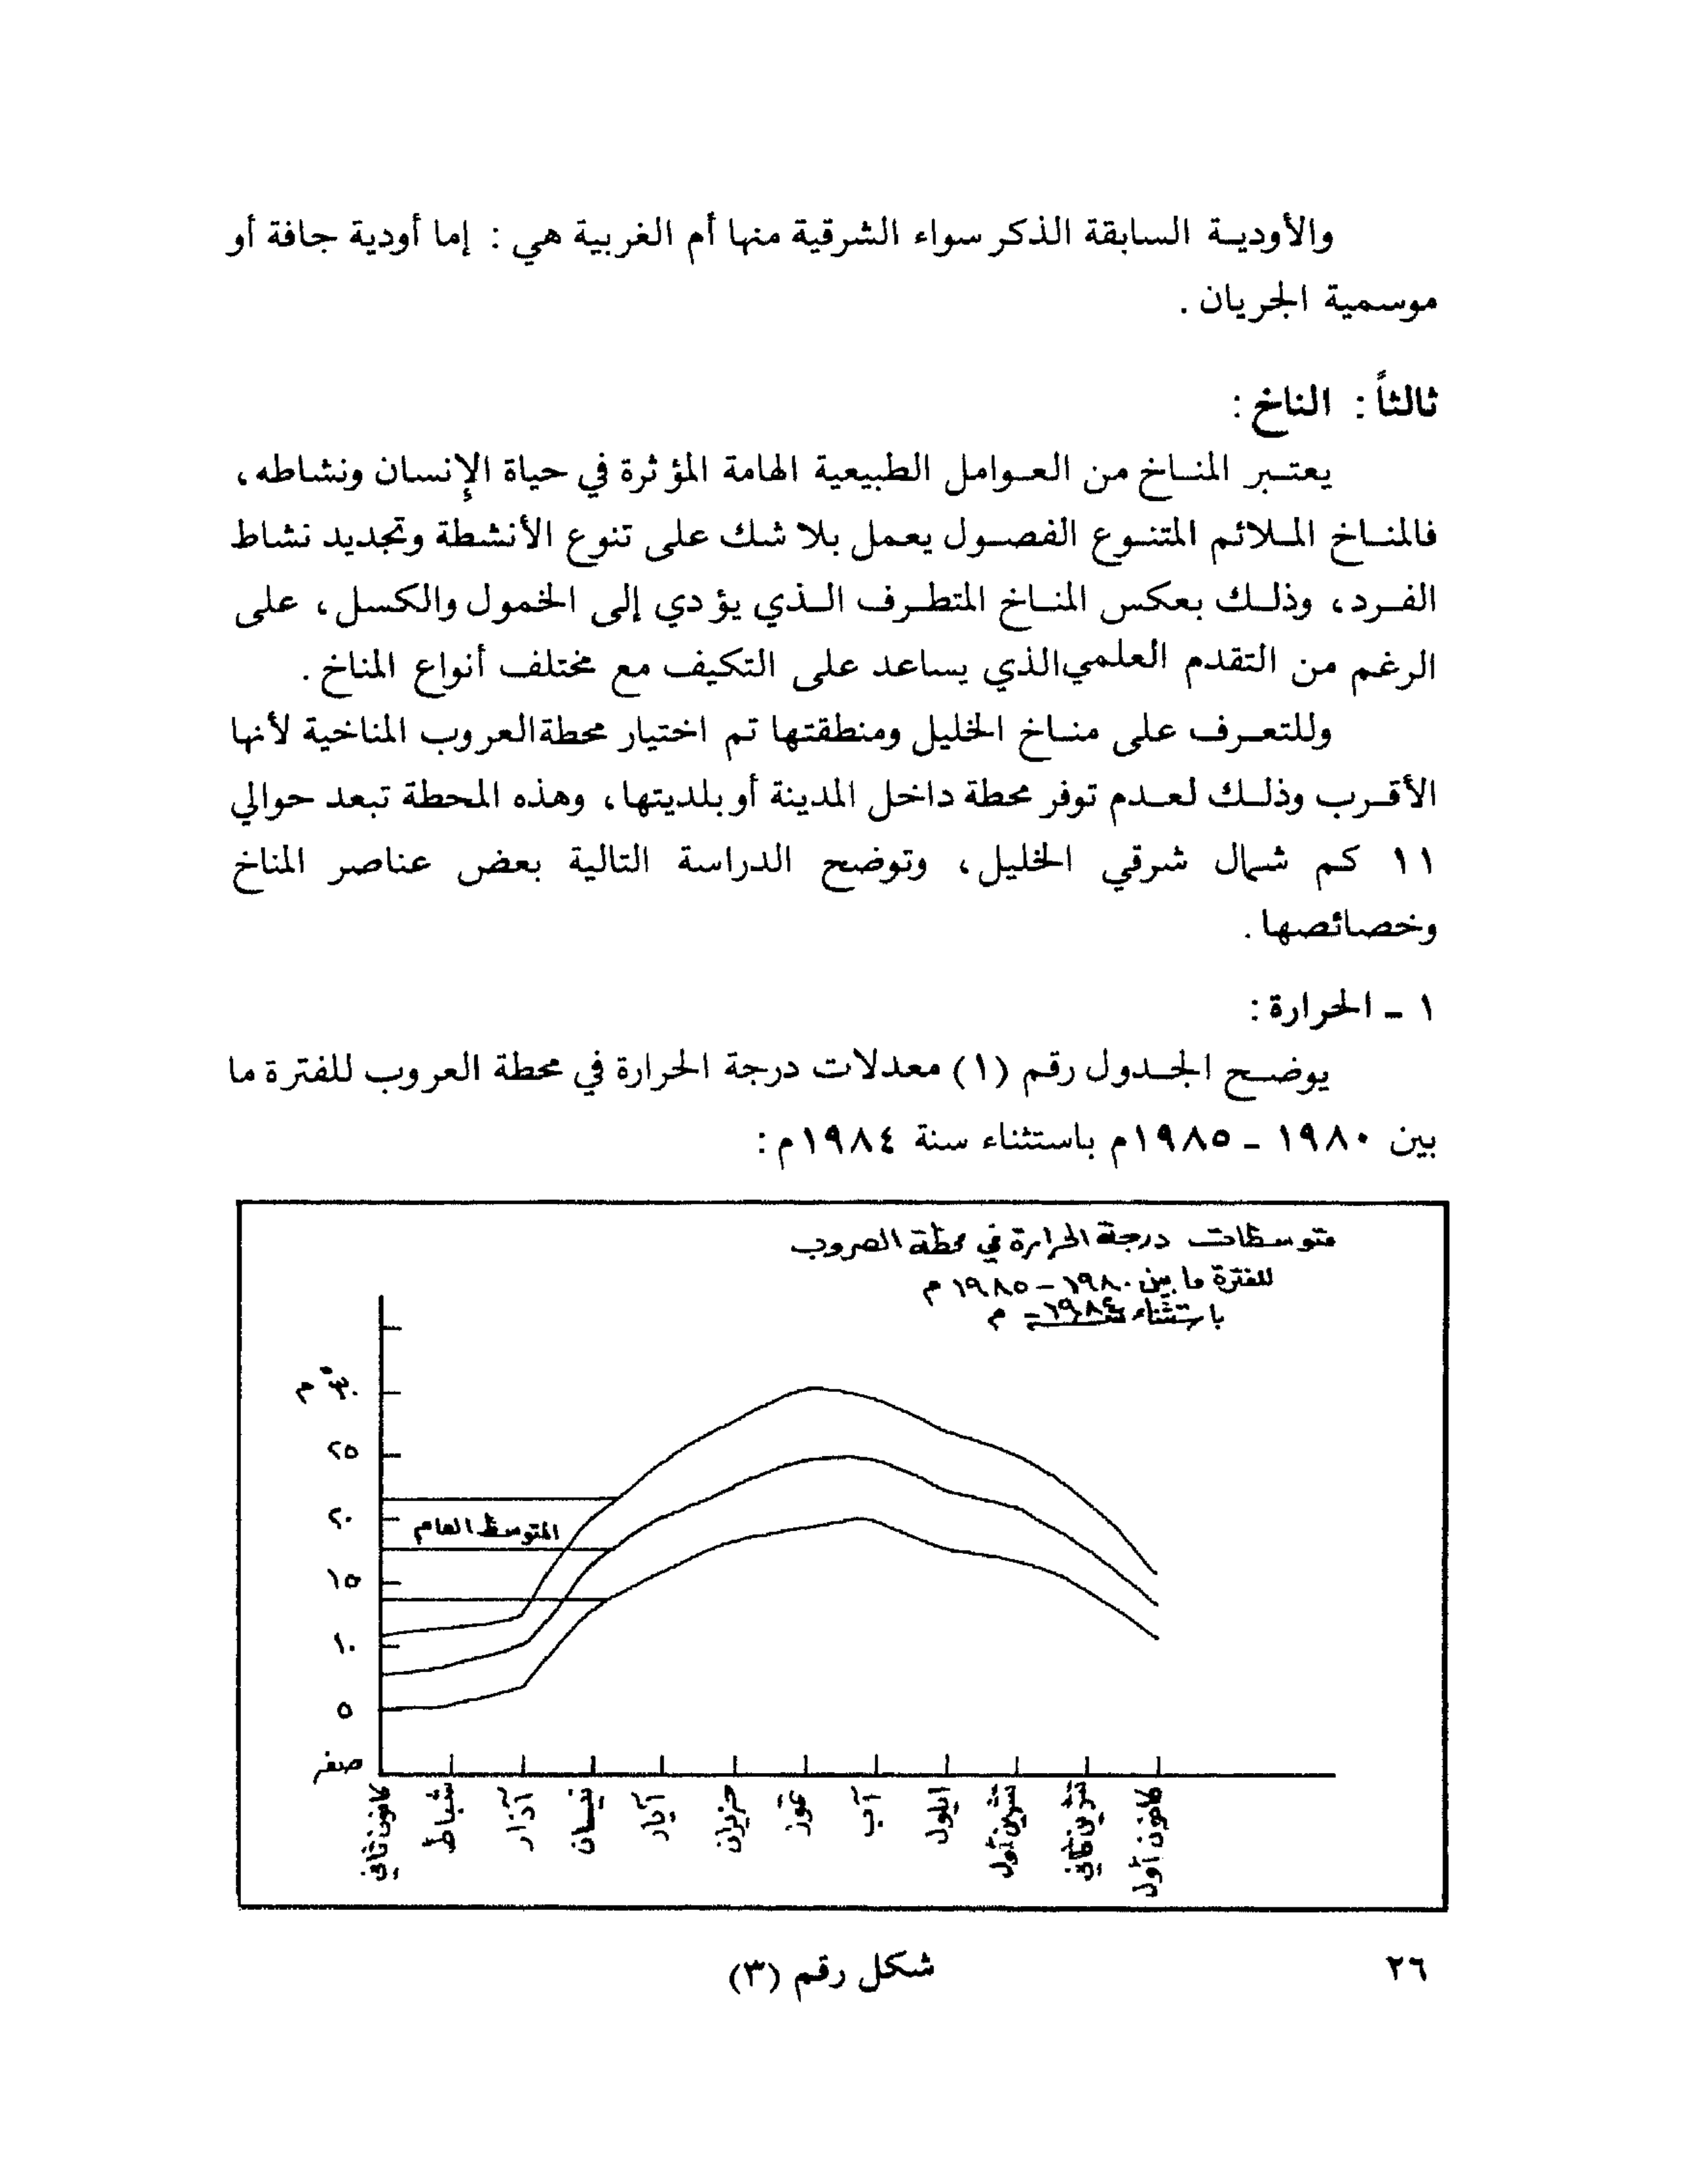 والأودية السابقة الذكر سواء الشرقية منها أم الغربية هي : إما أودية جافة أو
موسمية الجريان .
ثالثاً : الناخ :
يعتبر المناخ من العوامل الطبيعية الهامة المؤثرة في حياة الإنسان ونشاطه ،
فالمناخ الملائم المتنوع الفصول يعمل بلا شك على تنوع الأنشطة وتجديد نشاط
الفرد ، وذلك بعكس المناخ المتطرف الذي يؤدي إلى الخمول والكسل ، على
الرغم من التقدم العلمي الذي يساعد على التكيف مع مختلف أنواع المناخ .
وللتعرف على مناخ الخليل ومنطقتها تم اختيار محطة العروب المناخية لأنها
الأقرب وذلك لعدم توفر محطة داخل المدينة أو بلديتها ، وهذه المحطة تبعد حوالي
١١ كم شمال شرقي الخليل ، وتوضح الدراسة التالية بعض عناصر المناخ
وخصائصها .
١ - الحرارة :
يوضح الجدول رقم (١) معدلات درجة الحرارة في محطة العروب للفترة ما
بين ١٩٨٠ - ١٩٨٥م باستثناء سنة ١٩٨٤م :
متوسطات درجة الحرارة في محطة العروب
للفترة ما بين ١٩٨٠ - ١٩٨٥ م
باستثناء سنة ١٩٨٤ م
٣٠ ْم
٢٥
٢٠
المتوسط العام
١٥
١٠
٥
صفر
كانون ثاني
شباط
آذار
نيسان
آيار
حزيران
تموز
آب
ايلول
تشرين أول
تشرين ثاني
كانون أول
شكل رقم (٣)
٢٦